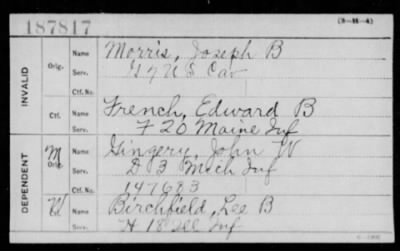 187817
(3-1148)
INVALID
Orig.
Name Morris, Joseph B
Serv. G 7 U S Cav
Ctf. No.
Ctf.
Name French, Edward B
Serv. F 20 Maine Inf
DEPENDENT
M
Orig.
Name Gingery, John W
Serv. D 3 Mich Inf
Ctf. No. 147683
W
Name Birchfield, Lee B
Serv. H 18 Ill Inf